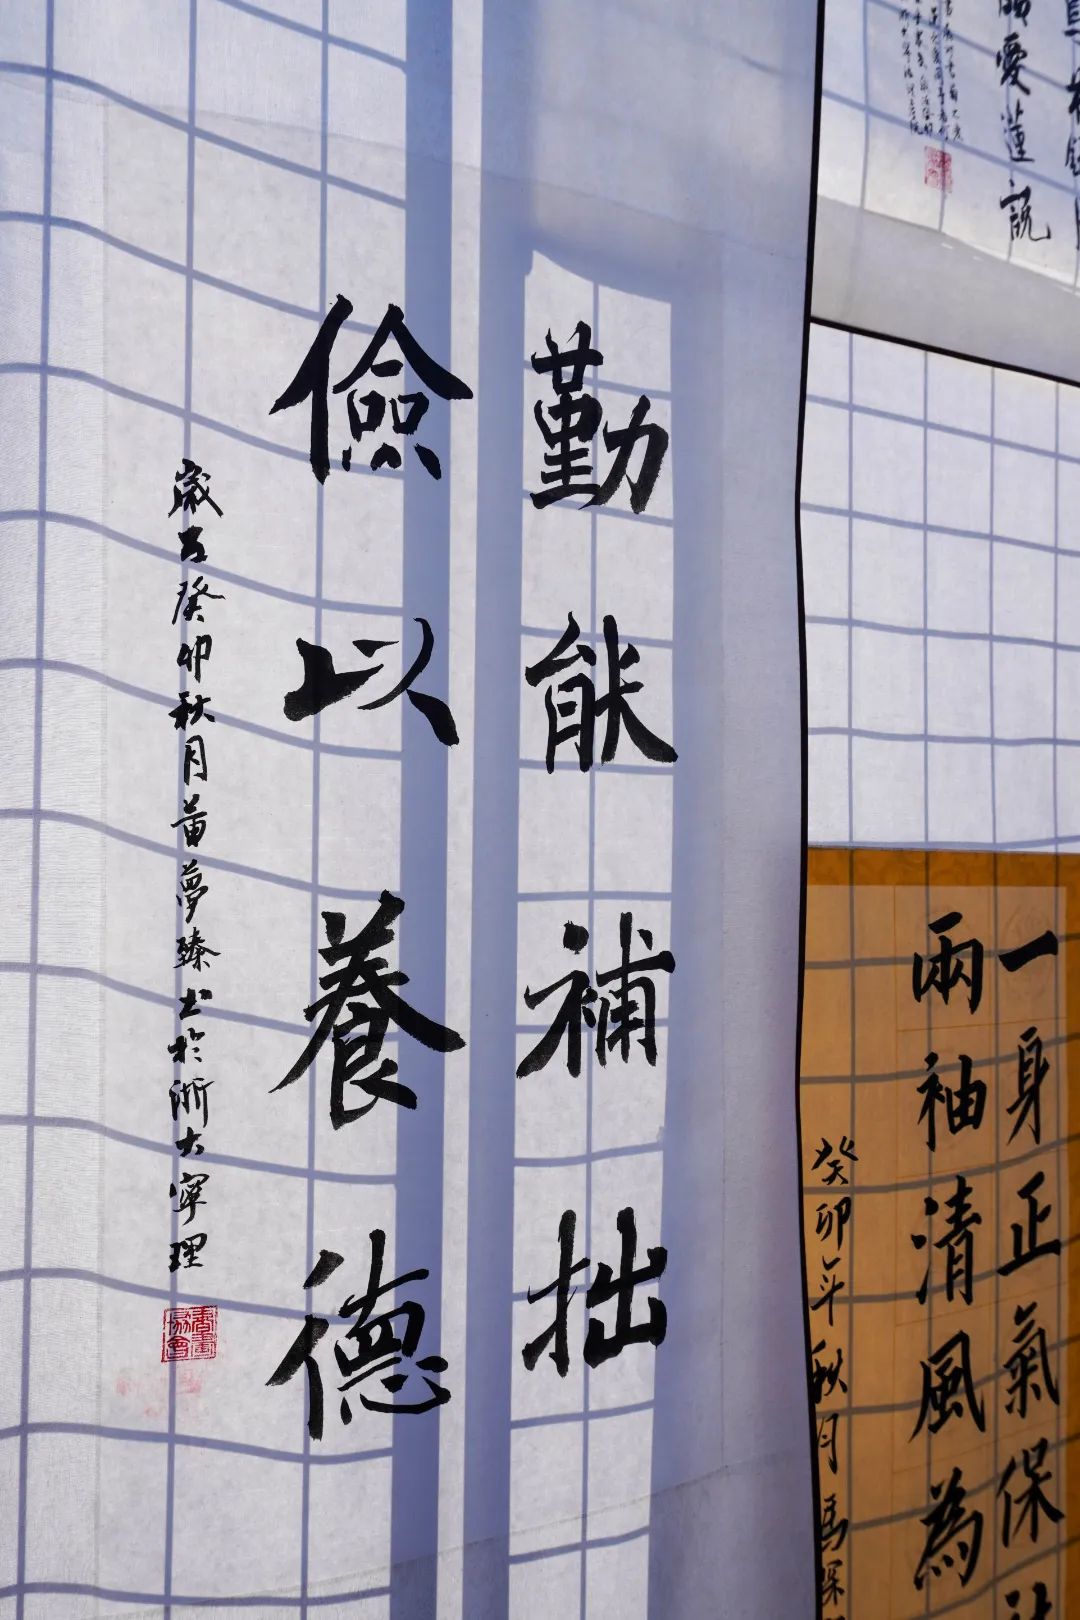 勤能補拙
儉以養德
歲在癸卯秋月黃夢臻书於浙大寧理
書畫
協會
愛蓮說
一身正氣保
兩袖清風為
癸卯年秋月馮深